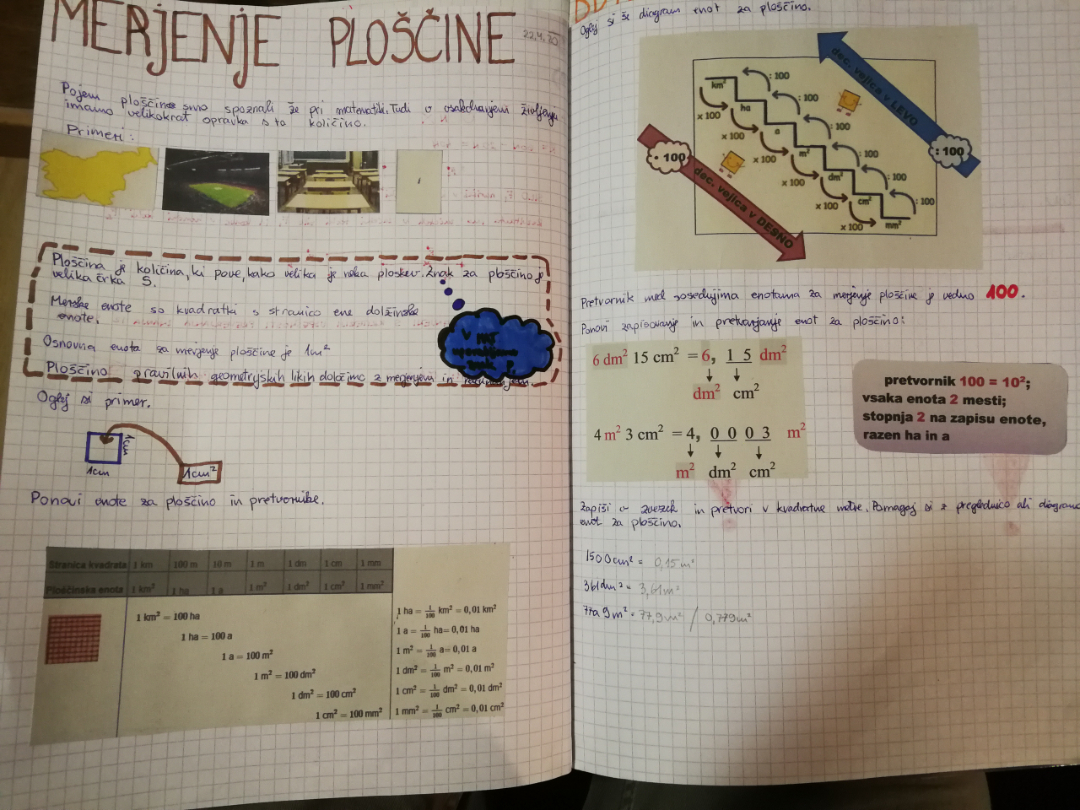 MERJENJE PLOŠČINE
22.4.20
Pojem ploščine smo spoznali že pri matematiki. Tudi v vsakdanjem življenju
imamo velikokrat opravka s to količino.
Primeri:
Ploščina je količina, ki pove, kako velika je neka ploskev. Znak za ploščino je
velika črka S.
Merske enote so kvadratki s stranico ene dolžinske
enote.
Osnovna enota za merjenje ploščine je 1m²
Ploščino pravilnih geometrijskih likih določimo z merjenjem in
V MAT
uporabljamo
znak P.
Oglej si primer.
1cm
1cm
1cm²
Ponovi enote za ploščino in pretvornike.
Stranica kvadrata 1 km 100 m 10 m 1 m 1 dm 1 cm 1 mm
Ploščinska enota 1 km² 1 ha 1 a 1 m² 1 dm² 1 cm² 1 mm²
1 km² = 100 ha
1 ha = 100 a
1 a = 100 m²
1 m² = 100 dm²
1 dm² = 100 cm²
1 cm² = 100 mm²
1 ha = 1/100 km² = 0,01 km²
1 a = 1/100 ha = 0,01 ha
1 m² = 1/100 a = 0,01 a
1 dm² = 1/100 m² = 0,01 m²
1 cm² = 1/100 dm² = 0,01 dm²
1 mm² = 1/100 cm² = 0,01 cm²
Oglej si še diagram enot za ploščino.
dec. vejica v LEVO
: 100
· 100
dec. vejica v DESNO
km²
ha
a
m²
dm²
cm²
mm²
: 100
: 100
: 100
: 100
: 100
: 100
x 100
x 100
x 100
x 100
x 100
x 100
Pretvornik med sosednjima enotama za merjenje ploščine je vedno 100.
Ponovi zapisovanje in pretvarjanje enot za ploščino:
6 dm² 15 cm² = 6, 1 5 dm²
dm² cm²
4 m² 3 cm² = 4, 0 0 0 3 m²
m² dm² cm²
pretvornik 100 = 10²;
vsaka enota 2 mesti;
stopnja 2 na zapisu enote,
razen ha in a
Zapiši v zvezek in pretvori v kvadratne metre. Pomagaj si z preglednico ali diagramom
enot za ploščino.
1500cm² = 0,15m²
361dm² = 3,61m²
77a 9m² = 77,9m² / 0,779m²